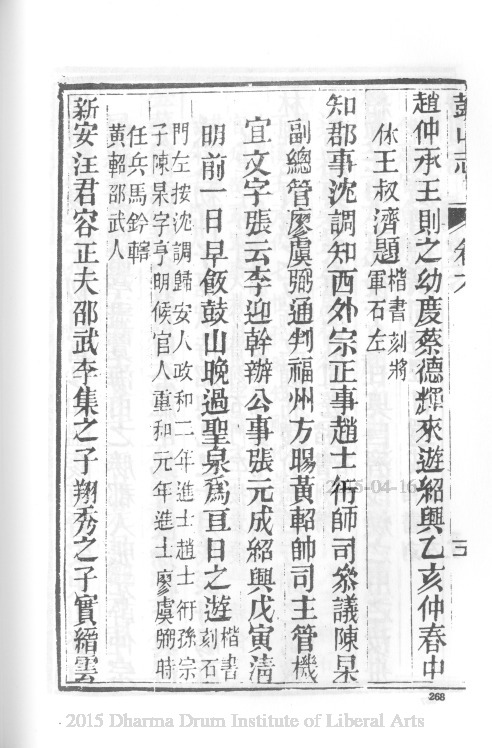 鼓山志 卷六
趙仲承王則之幼度蔡德輝來遊紹興乙亥仲春中
休王叔濟題楷書刻將軍石左
知郡事沈調知西外宗正事趙士衎師司叅議陳杲
副總管廖虞弼通判福州方暘黃軺帥司主管機
宜文字張云李迎幹辦公事張元成紹興戊寅淸
明前一日早飯鼓山晚過聖泉爲亘日之遊楷書刻石
門左按沈調歸安人政和二年進士趙士衎孫宗
子陳杲字亨明候官人重和元年進士廖虞弼時
任兵馬鈐轄
黃軺邵武人
新安汪君容正夫邵武李集之子翔秀之子實縉雲
268
2015-04-16
2015 Dharma Drum Institute of Liberal Arts